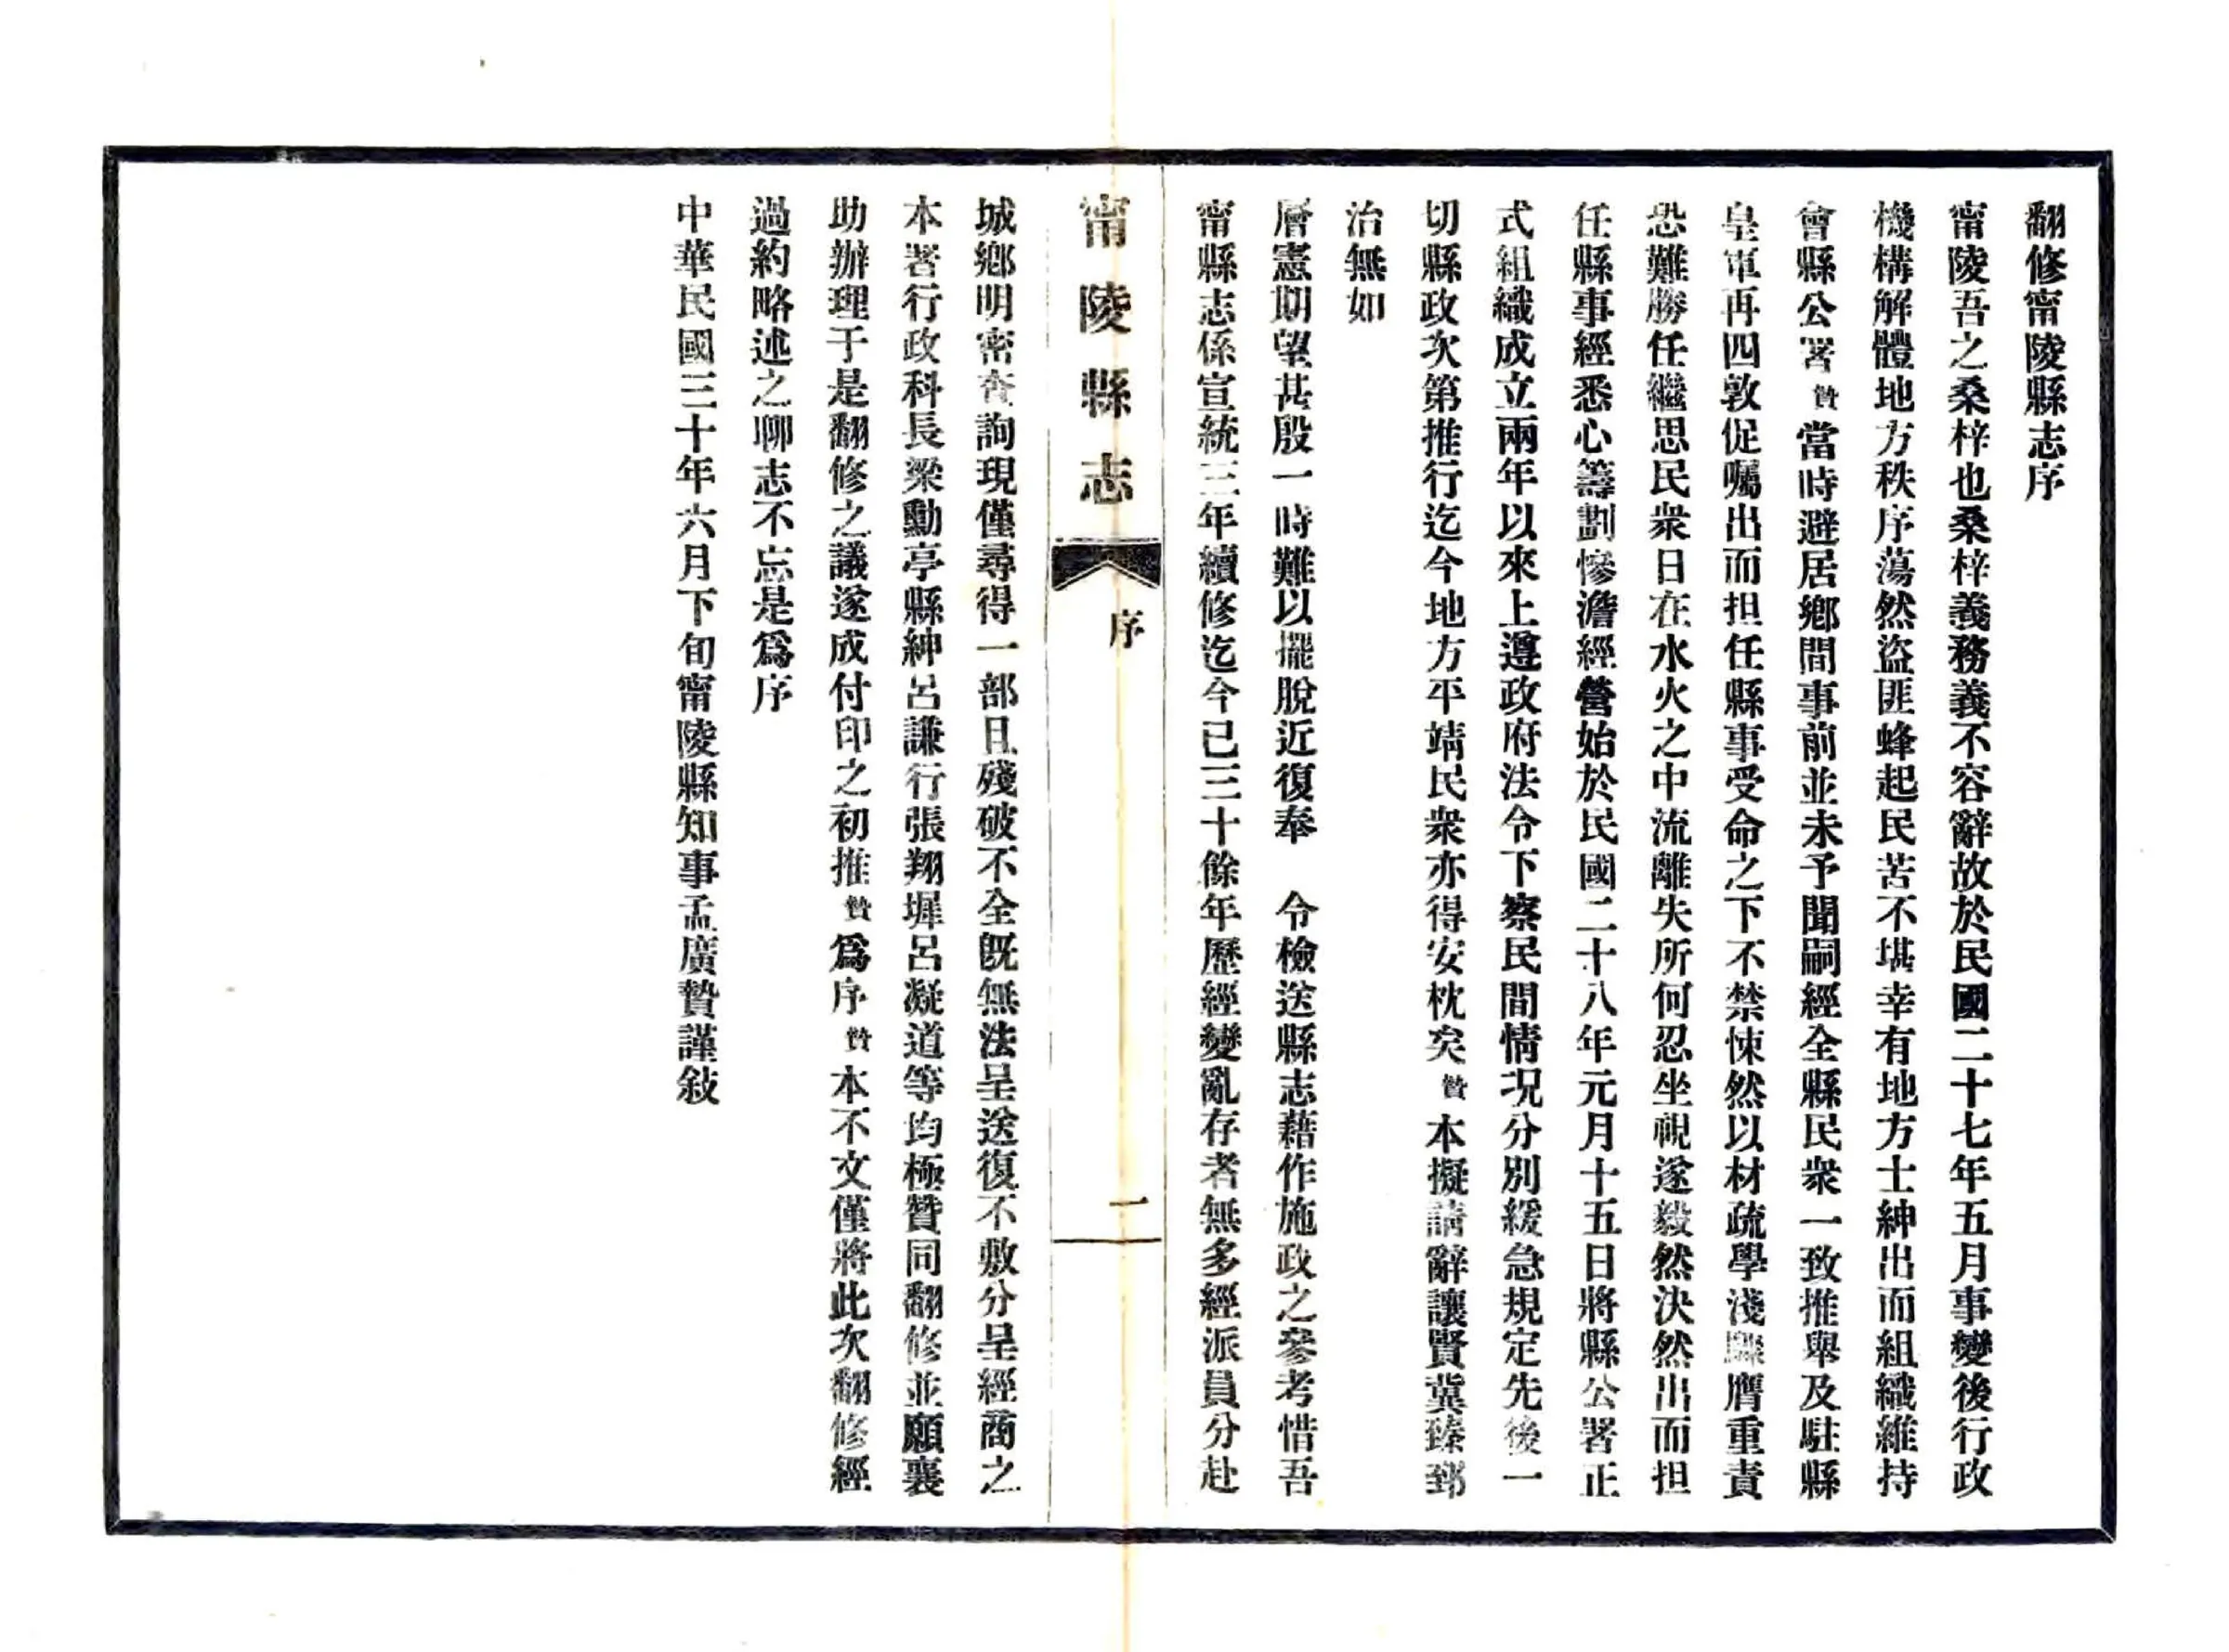 翻修甯陵縣志序
甯陵吾之桑梓也桑梓義務義不容辭故於民國二十七年五月事變後行政
機構解體地方秩序蕩然盜匪蜂起民苦不堪幸有地方士紳出而組織維持
會縣公署贊當時避居鄉間事前並未予聞嗣經全縣民衆一致推舉及駐縣
皇軍再四敦促囑出而担任縣事受命之下不禁悚然以材疏學淺驟膺重責
恐難勝任繼思民衆日在水火之中流離失所何忍坐視遂毅然決然出而担
任縣事經悉心籌劃慘澹經營始於民國二十八年元月十五日將縣公署正
式組織成立兩年以來上遵政府法令下察民間情况分別緩急規定先後一
切縣政次第推行迄今地方平靖民衆亦得安枕矣贊本擬請辭讓賢冀臻郅
治無如
層憲期望甚殷一時難以擺脫近復奉　令檢送縣志藉作施政之參考惜吾
甯縣志係宣統三年續修迄今已三十餘年歷經變亂存者無多經派員分赴
甯陵縣志
序
一
城鄉明密查詢現僅尋得一部且殘破不全既無法呈送復不敷分呈經商之
本署行政科長梁勳亭縣紳呂謙行張翔墀呂凝道等均極贊同翻修並願襄
助辦理于是翻修之議遂成付印之初推贊爲序贊本不文僅將此次翻修經
過約略述之聊志不忘是爲序
中華民國三十年六月下旬甯陵縣知事孟廣贊謹敍